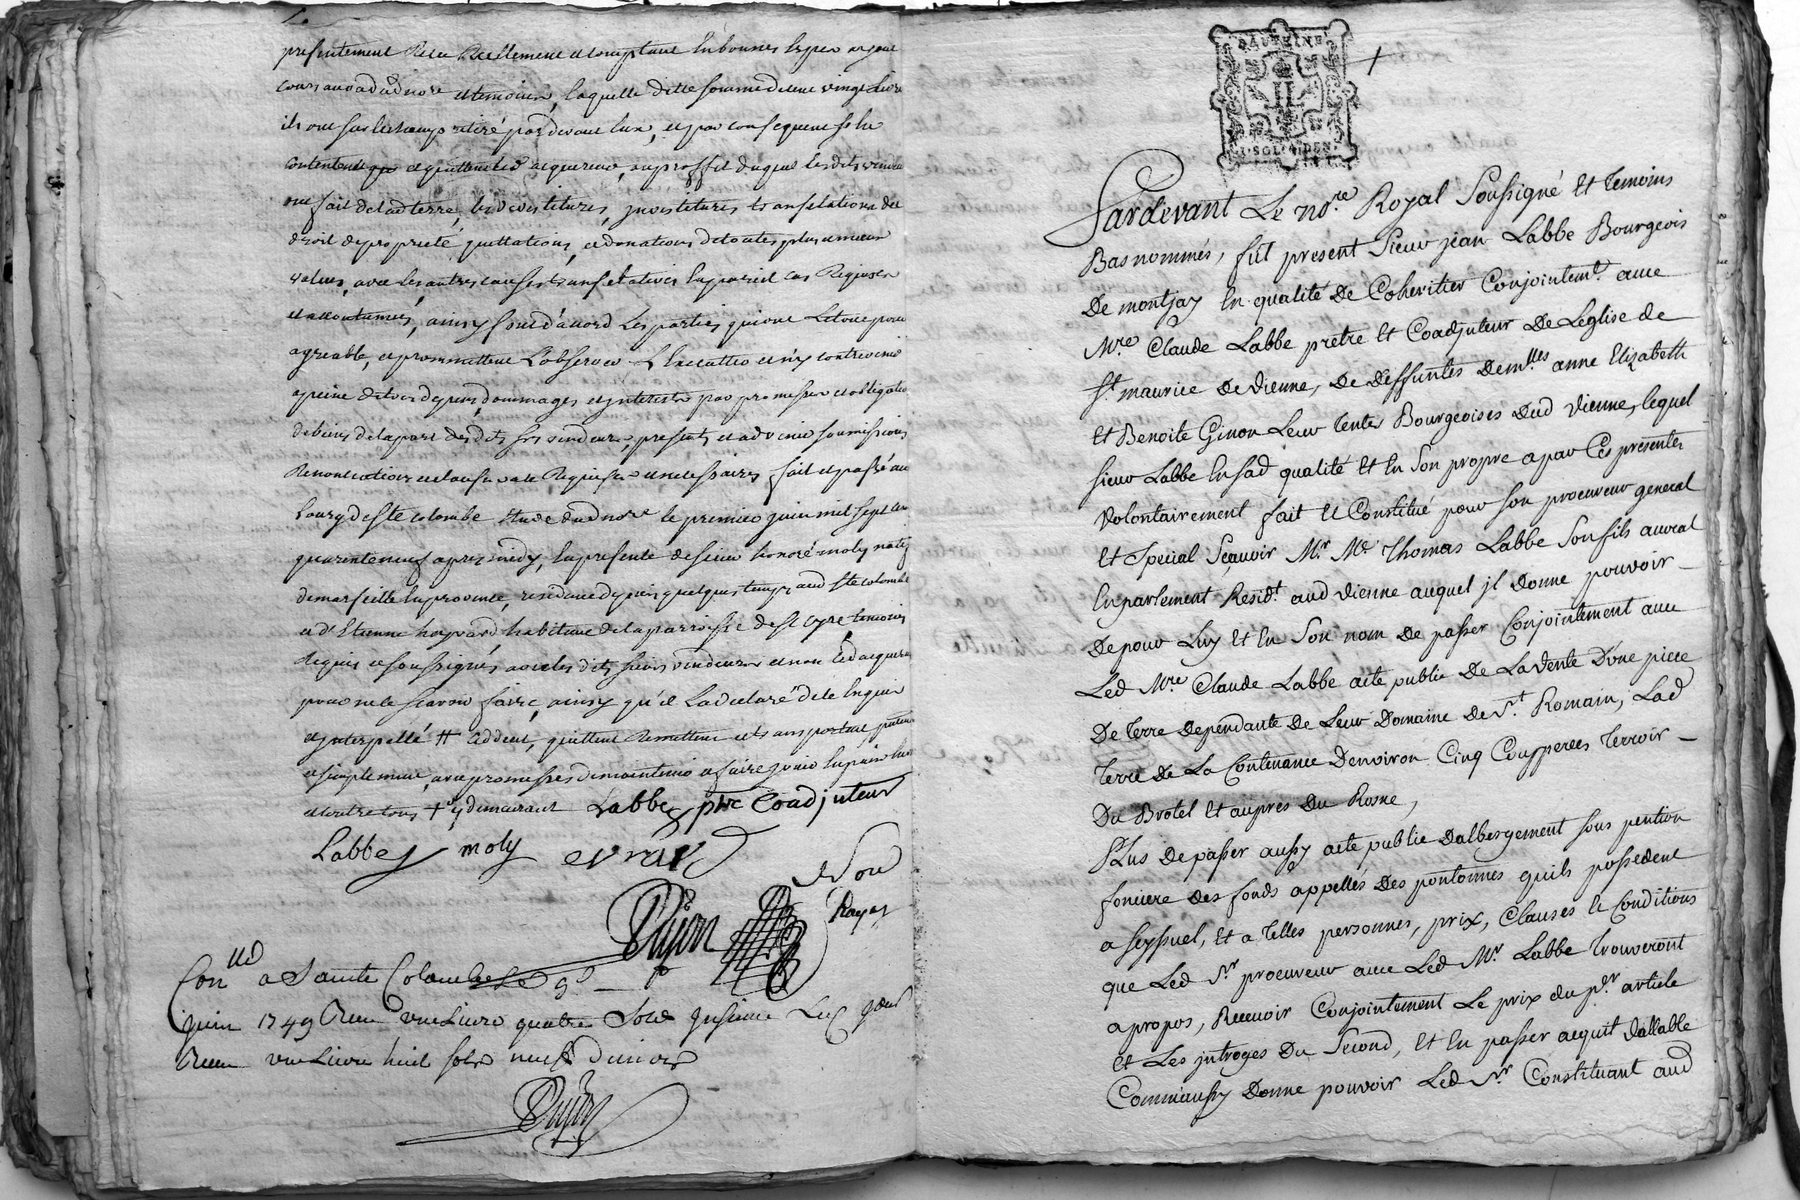 presentement Reelement et comptant en bonnes Especes
cours et temoins, laquelle ditte somme de livre
ils ont sur le champ retiré par devant Eux, et par consequent
contentent et quittent led acquereur, au proffit duquel lesdits
ont fait de lad terre, devestitures, investitures translations de
droit de proprieté, quittations, et donations de toutes plus
values, avec les autres clauses translatives en pareil cas Requises
et accoutumées, ainsy sont d'accord les parties qui ont le tout pour
agreable, et promettent l'observer l'Executter et n'y contrevenir
a peine de tous depens, dommages et interests par promesses et obligation
de biens de la part desdits srs vendeurs, presents et advenir soumissions
Renonciations et clauses Requises et necessaires fait et passé au
bourg de ste colombe Etude dud nore le premier juin mil sept cent
quarante neuf apres midy, En presence de sieur honoré moly natif
de marseille En provence, residant depuis quelques temps aud ste colombe
et d'Etienne habitant de la parroisse de st cyre temoins
Requis et soussignés avec lesdits sieurs vendeurs et non led acquereur
pour ne le scavoir faire, ainsy qu'il l'a declaré de ce Enquis
et interpellé # ceddent, quittent Remettent et transportent
et simplement, avec promesses de maintenir et faire jouir
et contre tous + y demeurant Labbe ptre Coadjuteur
Labbe moly evrard
Dujon nore
Royal
Conlle a Sainte Colombe le 9e
juin 1749 Reçu une Livre quatre Sols
Reçu une Livre huit sols neuf deniers
Dujon
DAUPHINE
+
Pardevant Le nore Royal Soussigné Et Temoins
Bas nommés, fut present Sieur jean Labbe Bourgeois
De montjay En qualité De Coheritier Conjointemt. avec
Mre Claude Labbe prêtre Et Coadjuteur De Leglise de
st. maurice de vienne, De Deffuntes Demlles anne Elizabeth
Et Benoite Ginon Leur tentes Bourgeoises Dud Vienne, lequel
sieur Labbe En sad qualité Et En son propre a par Ces presentes
volontairement fait Et Constitué pour son procureur general
Et special Sçavoir Mr Me Thomas Labbe son fils avocat
En parlement Residt. aud Vienne auquel jl donne pouvoir –
De pour Luy Et En son nom De passer Conjointement avec
Led Mre Claude Labbe acte public De La Vente D'une piece
De Terre Dependante De Leur Domaine De St. Romain, Lad
Terre De La Contenance D'environ Cinq Coupperées Terroir –
Du Brotel Et aupres Du Rosne,
Plus De passer aussy acte public D'albergement sous pention
fonciere Des fonds appellés Des pontonnes qu'ils possedent
a seyssuel, Et a Telles personnes, prix, Clauses Et Conditions
que Led Sr procureur avec Led Mr Labbe Trouveront
a propos, Recevoir Conjointement Le prix du pr article
Et Les jntroges Du Second, Et En passer acquit Vallable
Comm'aussy Donne pouvoir Led Sr Constituant aud